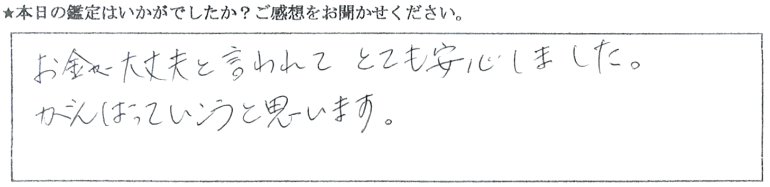 ★本日の鑑定はいかがでしたか？ご感想をお聞かせください。
お金が大丈夫と言われて とても安心しました。
がんばっていこうと思います。